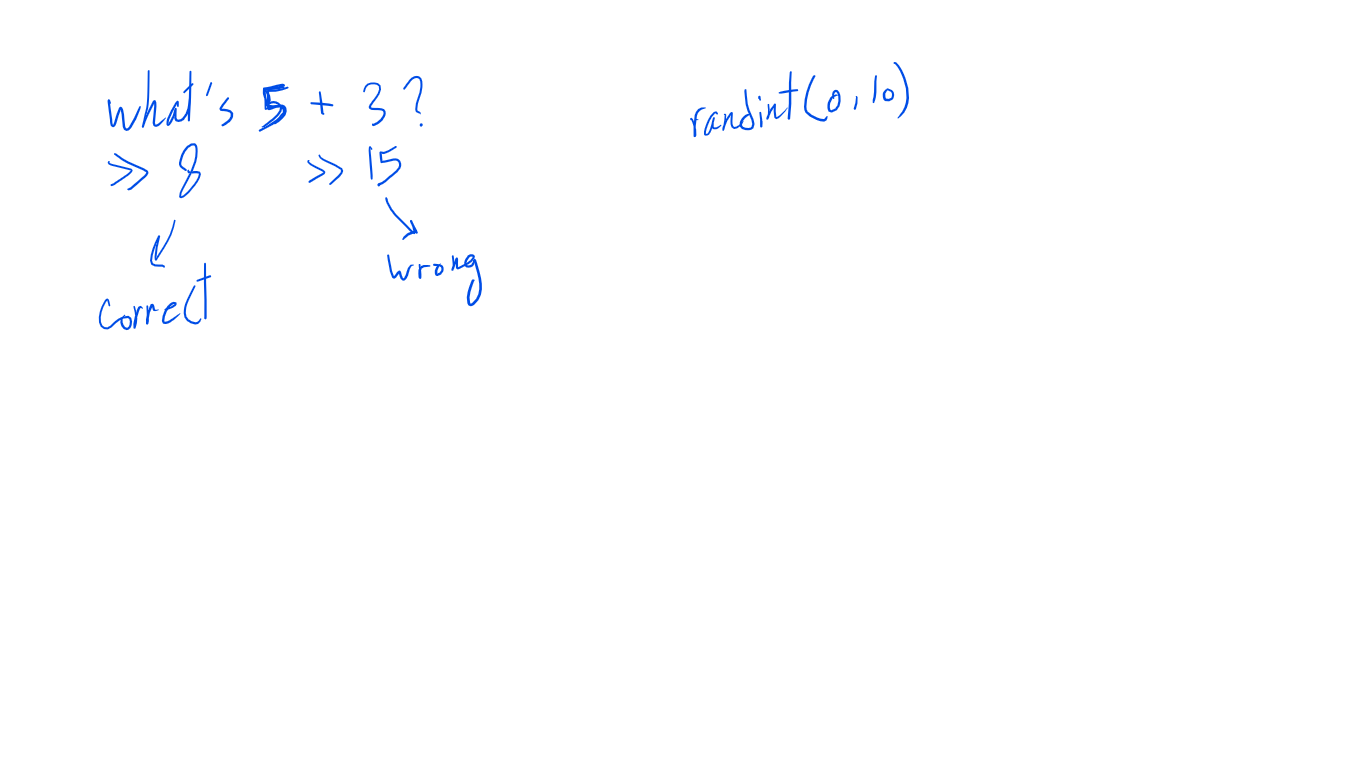 what's 5 + 3 ?
>> 8
>> 15
correct
wrong
randint(0, 10)